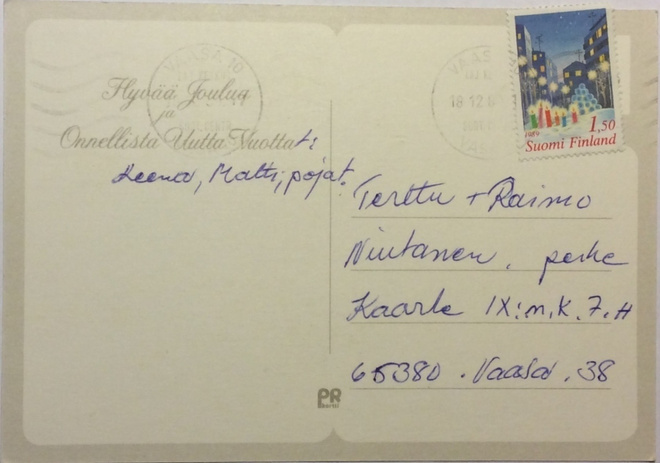 VAASA 10
Hyvää Joulua
ja
Onnellista Uutta Vuotta t:
Leena, Matti, pojat.
VAAS
18.12.
VAS
1989
1,50
Suomi Finland
Terttu + Raimo
Niutanen. perhe
Kaarle IX:n, K. 7. H
65380 . Vaasa . 38
PR
kortti